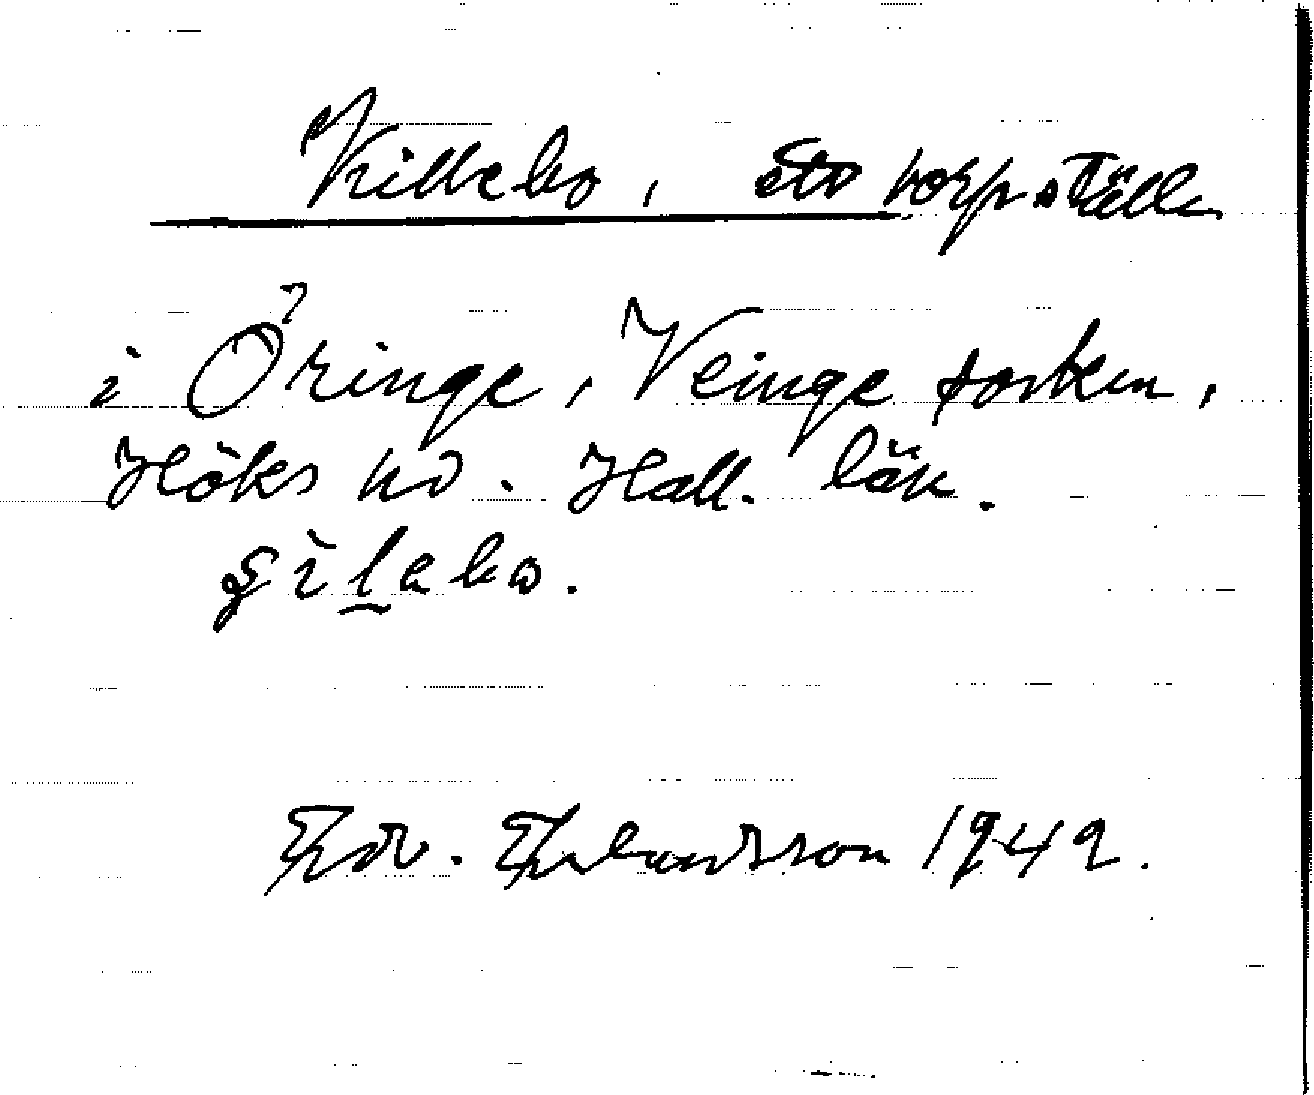 Killebo, ett torpställe
i Öringe, Veinge socken,
Höks hd. Hall. län.
ɕìl̲ebo.
Edv. Erlandsson 1949.